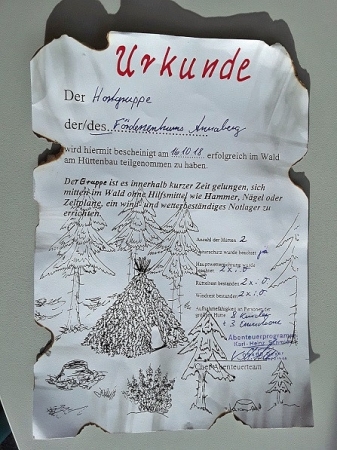 Urkunde
Der Hortgruppe
der/des Förderzentrums Annaberg
wird hiermit bescheinigt am 16.10.18 erfolgreich im Wald
am Hüttenbau teilgenommen zu haben.
Der Gruppe ist es innerhalb kurzer Zeit gelungen, sich
mitten im Wald ohne Hilfsmittel wie Hammer, Nägel oder
Zeltplane, ein wind- und wetterbeständiges Notlager zu
errichten.
Anzahl der 2
wurde beachtet ja
2 x i.O.
bestanden 2 x i.O.
Windtest bestanden 2 x i.O.
Aufnahmefähigkeit an Personen der
Hütte 8 Kinder
+ 3 Erwachsene
Abenteuerprogramme
Karl-Heinz